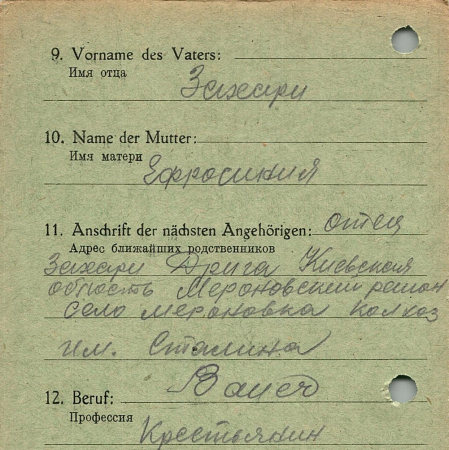 9. Vorname des Vaters:
Имя отца
Захари
10. Name der Mutter:
Имя матери
Ефросиния
11. Anschrift der nächsten Angehörigen: отец
Адрес ближайших родственников
Захари Дрига Киевская
область Мероновский район
село мероновка колхоз
им. Сталина
12. Beruf: Bauer
Профессия
Крестьянин